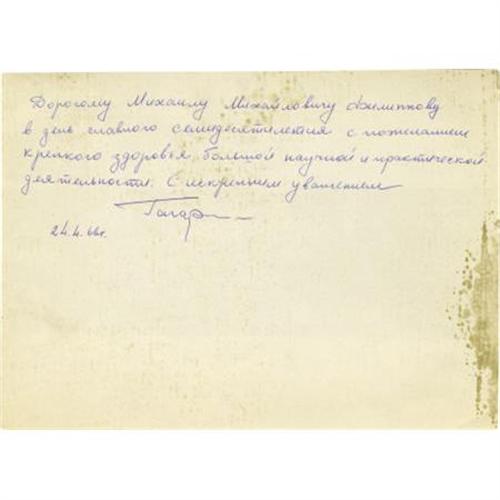 Дорогому Михаилу Михайловичу Филиппкову
в день славного семидесятилетия с пожеланием
крепкого здоровья, большой научной и практической
деятельности. С искренним уважением
Гагар
24.4.66г.